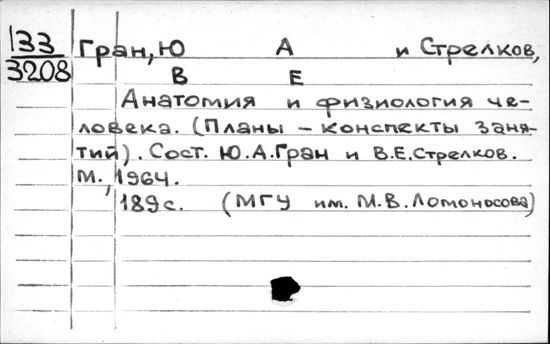 133
3208
Гран, Ю А и Стрелков,
В Е
Анатомия и физиология че-
ловека. (Планы – конспекты заня-
тий). Сост. Ю.А.Гран и В.Е.Стрелков.
М., 1964.
189с. (МГУ им. М.В. Ломоносова)